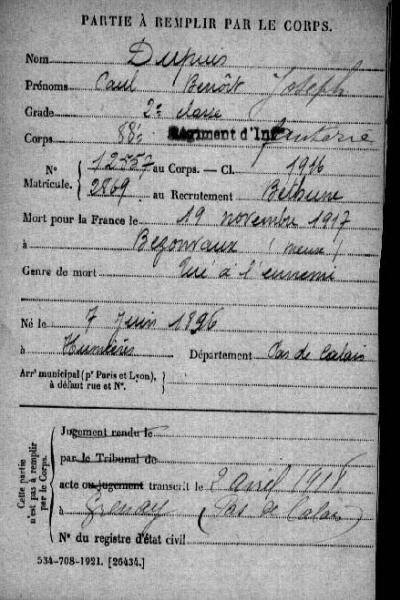 PARTIE À REMPLIR PAR LE CORPS.
Nom Dupuis
Prénoms Paul Benoît Joseph
Grade 2e classe
Corps 88e Régiment d'Infanterie
N° 12557 au Corps. — Cl. 1916
Matricule. 2869 au Recrutement Béthune
Mort pour la France le 19 novembre 1917
à Bezonvaux (Meuse)
Genre de mort Tué à l'ennemi
Né le 7 Juin 1896
à Humières Département Pas de Calais
Arrt municipal (pr Paris et Lyon), à défaut rue et N°.
Cette partie n'est pas à remplir par le Corps.
Jugement rendu le
par le Tribunal de
acte ou jugement transcrit le 2 avril 1918
à Grenay (Pas de Calais)
N° du registre d'état civil
534-708-1921. [26434.]